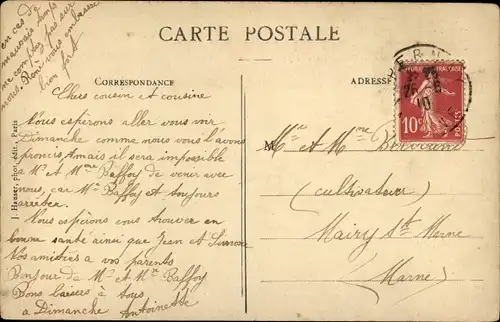 en cas de
mauvais temps
ne comptez pas sur
nous. René vous embrasse
bien fort
CARTE POSTALE
CORRESPONDANCE
ADRESSE
RÉPUBLIQUE FRANÇAISE
10c
POSTES
Chers cousin et cousine
Nous espérons aller vous voir
Dimanche comme nous vous l'avons
promis mais il sera impossible
a Mr et Mme Baffoy de venir avec
nous, car Mr Baffoy est toujours
Nous espérons vous trouver en
bonne santé ainsi que Jean et Simone
Nos amitiés a vos parents
Bonjour de Mr et Mme Baffoy
Bons baisers à tous
a Dimanche Antoinette
Mr et Mme Bertrand
(cultivateur)
Mairy s/ Marne
(Marne)
J. Hauser, phot. édit., Paris